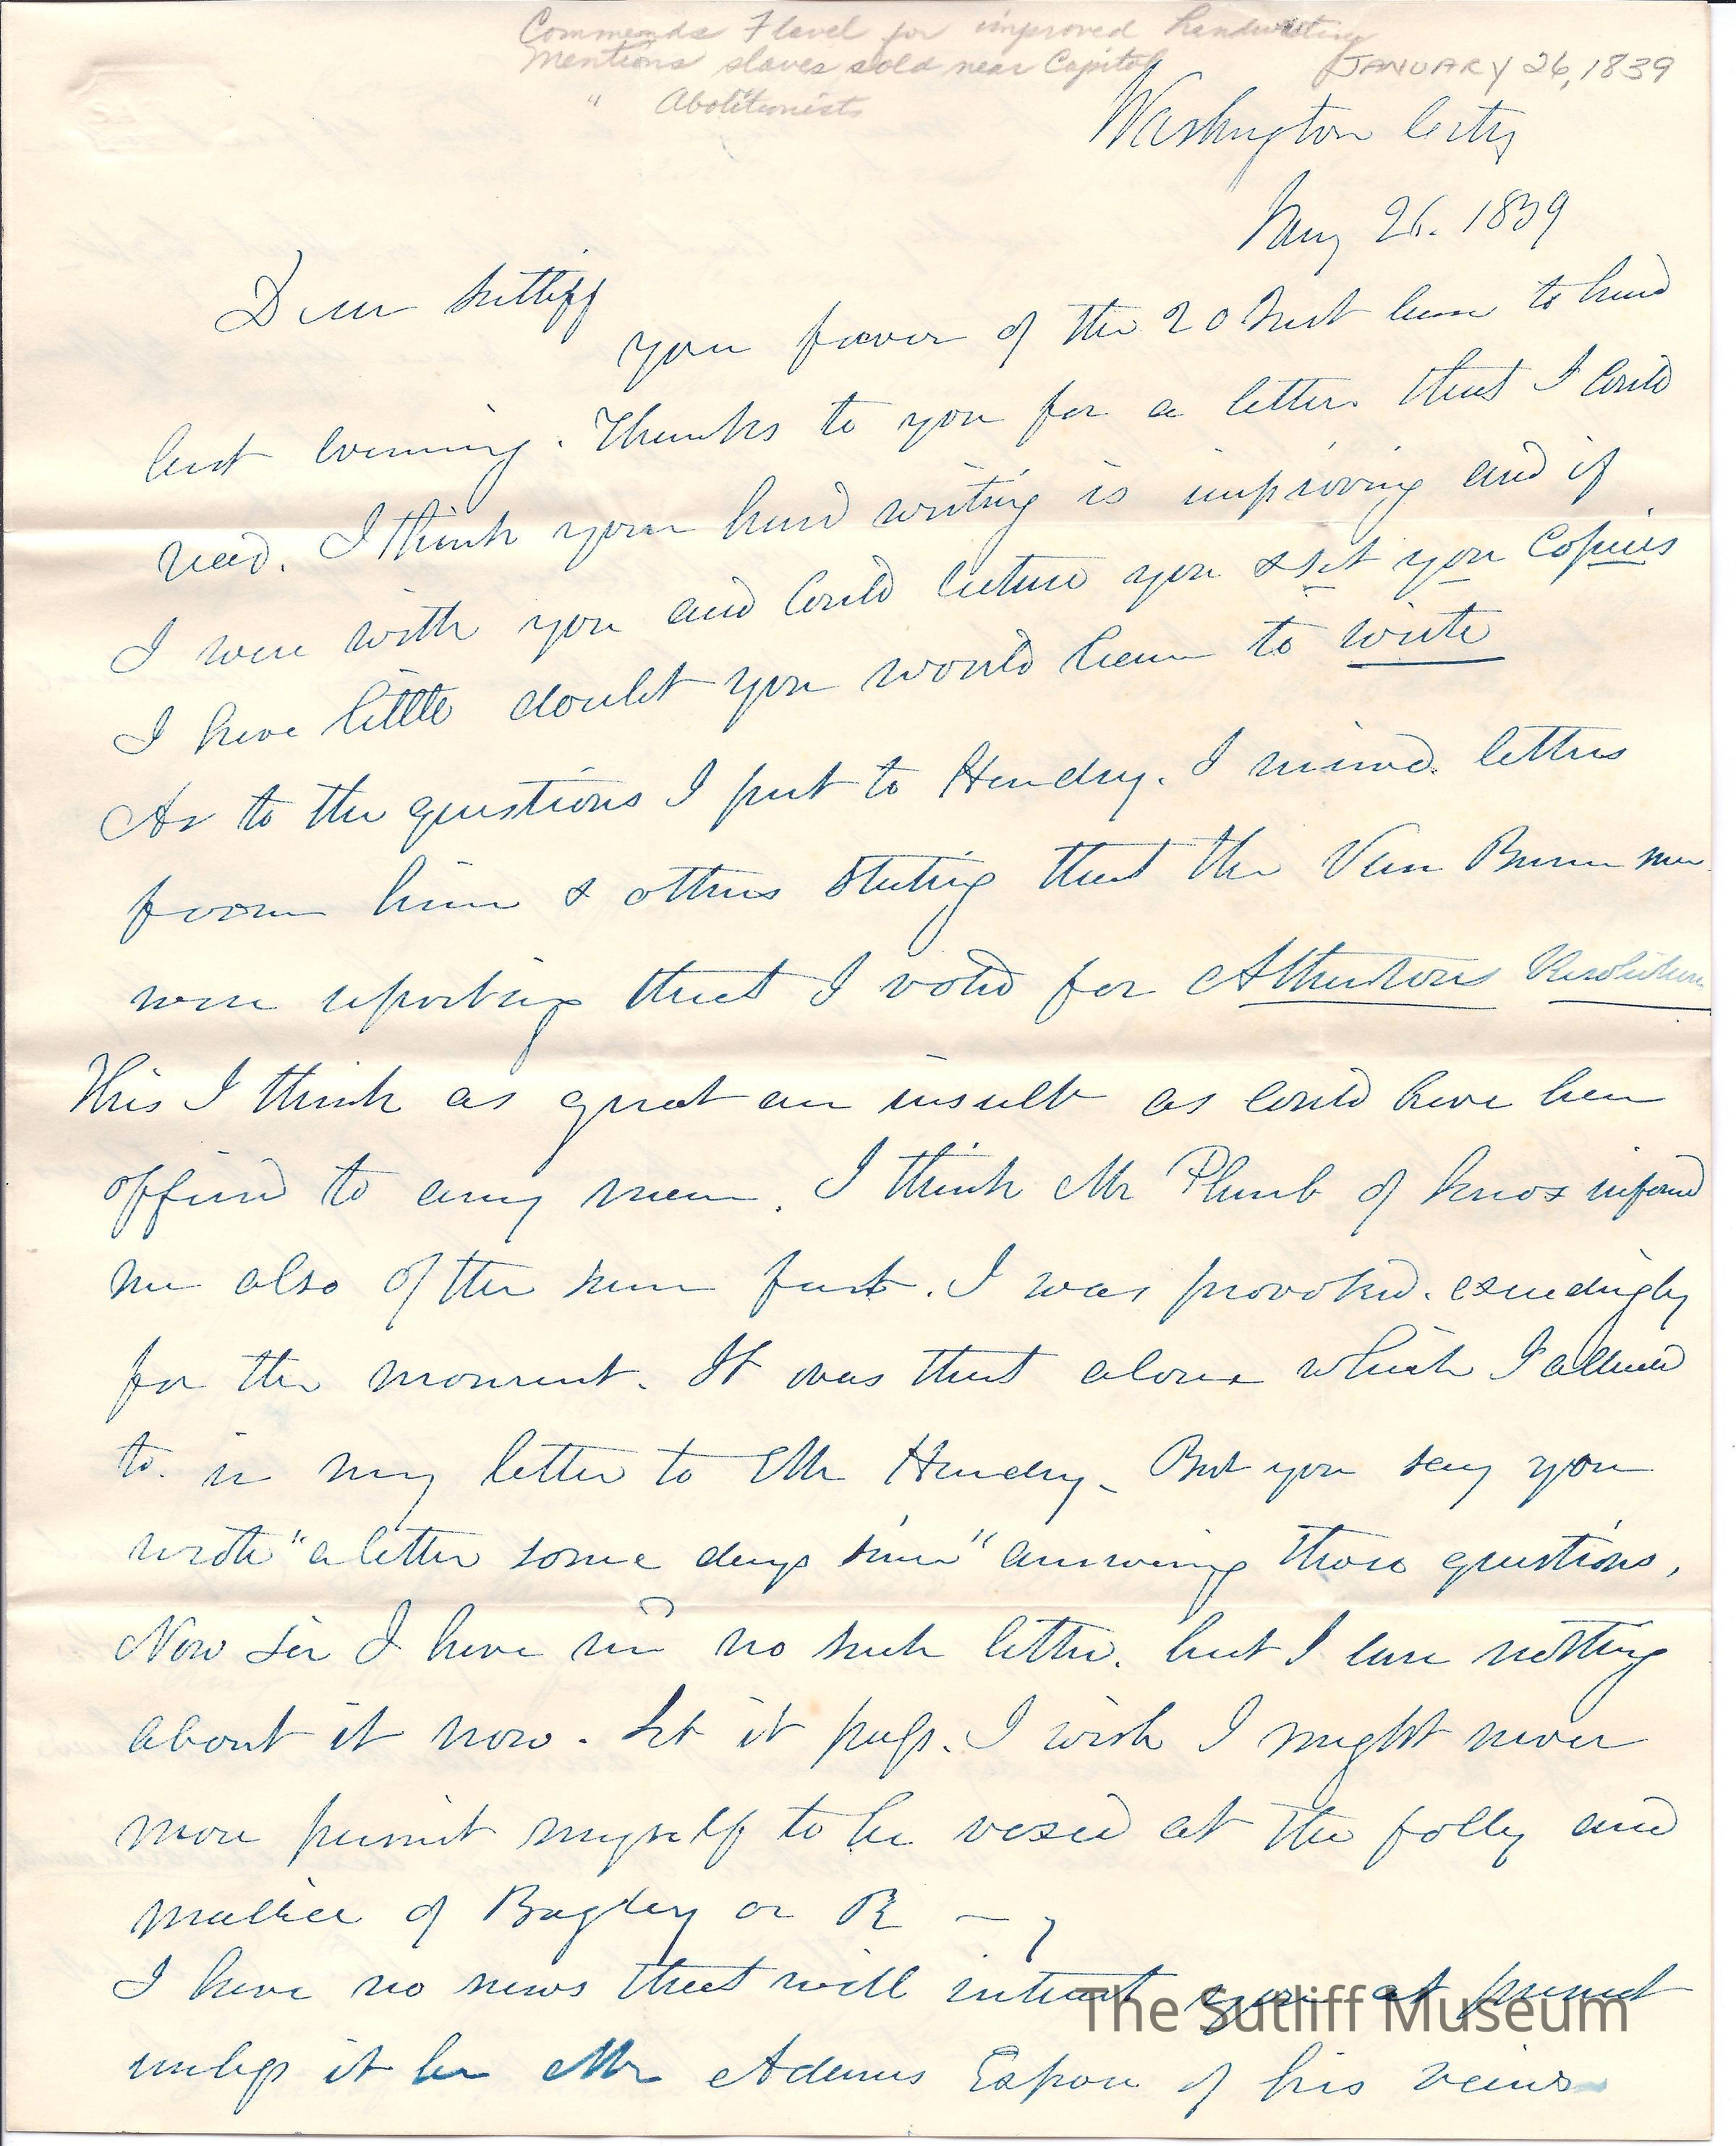 Commends Flavel for improved handwriting
Mentions slaves sold near Capitol
" Abolitionists
JANUARY 26, 1839
Washington City
Jany 26. 1839
Dear Sutliff
your favor of the 20 Inst came to hand
last evening. Thanks to you for a letter that I could
read. I think your hand writing is improving and if
I were with you and could lecture you & set you copies
I have little doubt you would learn to write
As to the questions I put to Hendry. I received letters
from him & others stating that the Van Buren men
were reporting that I voted for Athertons Resolutions
This I think as great an insult as could have been
offered to any man. I think Mr Plumb of Knox informd
me also of the same fact. I was provoked exceedingly
for the moment. It was that alone which I alluded
to in my letter to Mr Hendry. But you say you
wrote "a letter some days since" answering those questions,
Now Sir I have recd no such letter. but I care nothing
about it now. Let it pass. I wish I might never
more permit myself to be vexed at the folly and
malice of Bagley or R —
I have no news that will interest you at present
unless it be Mr Adams Expose of his views
The Sutliff Museum